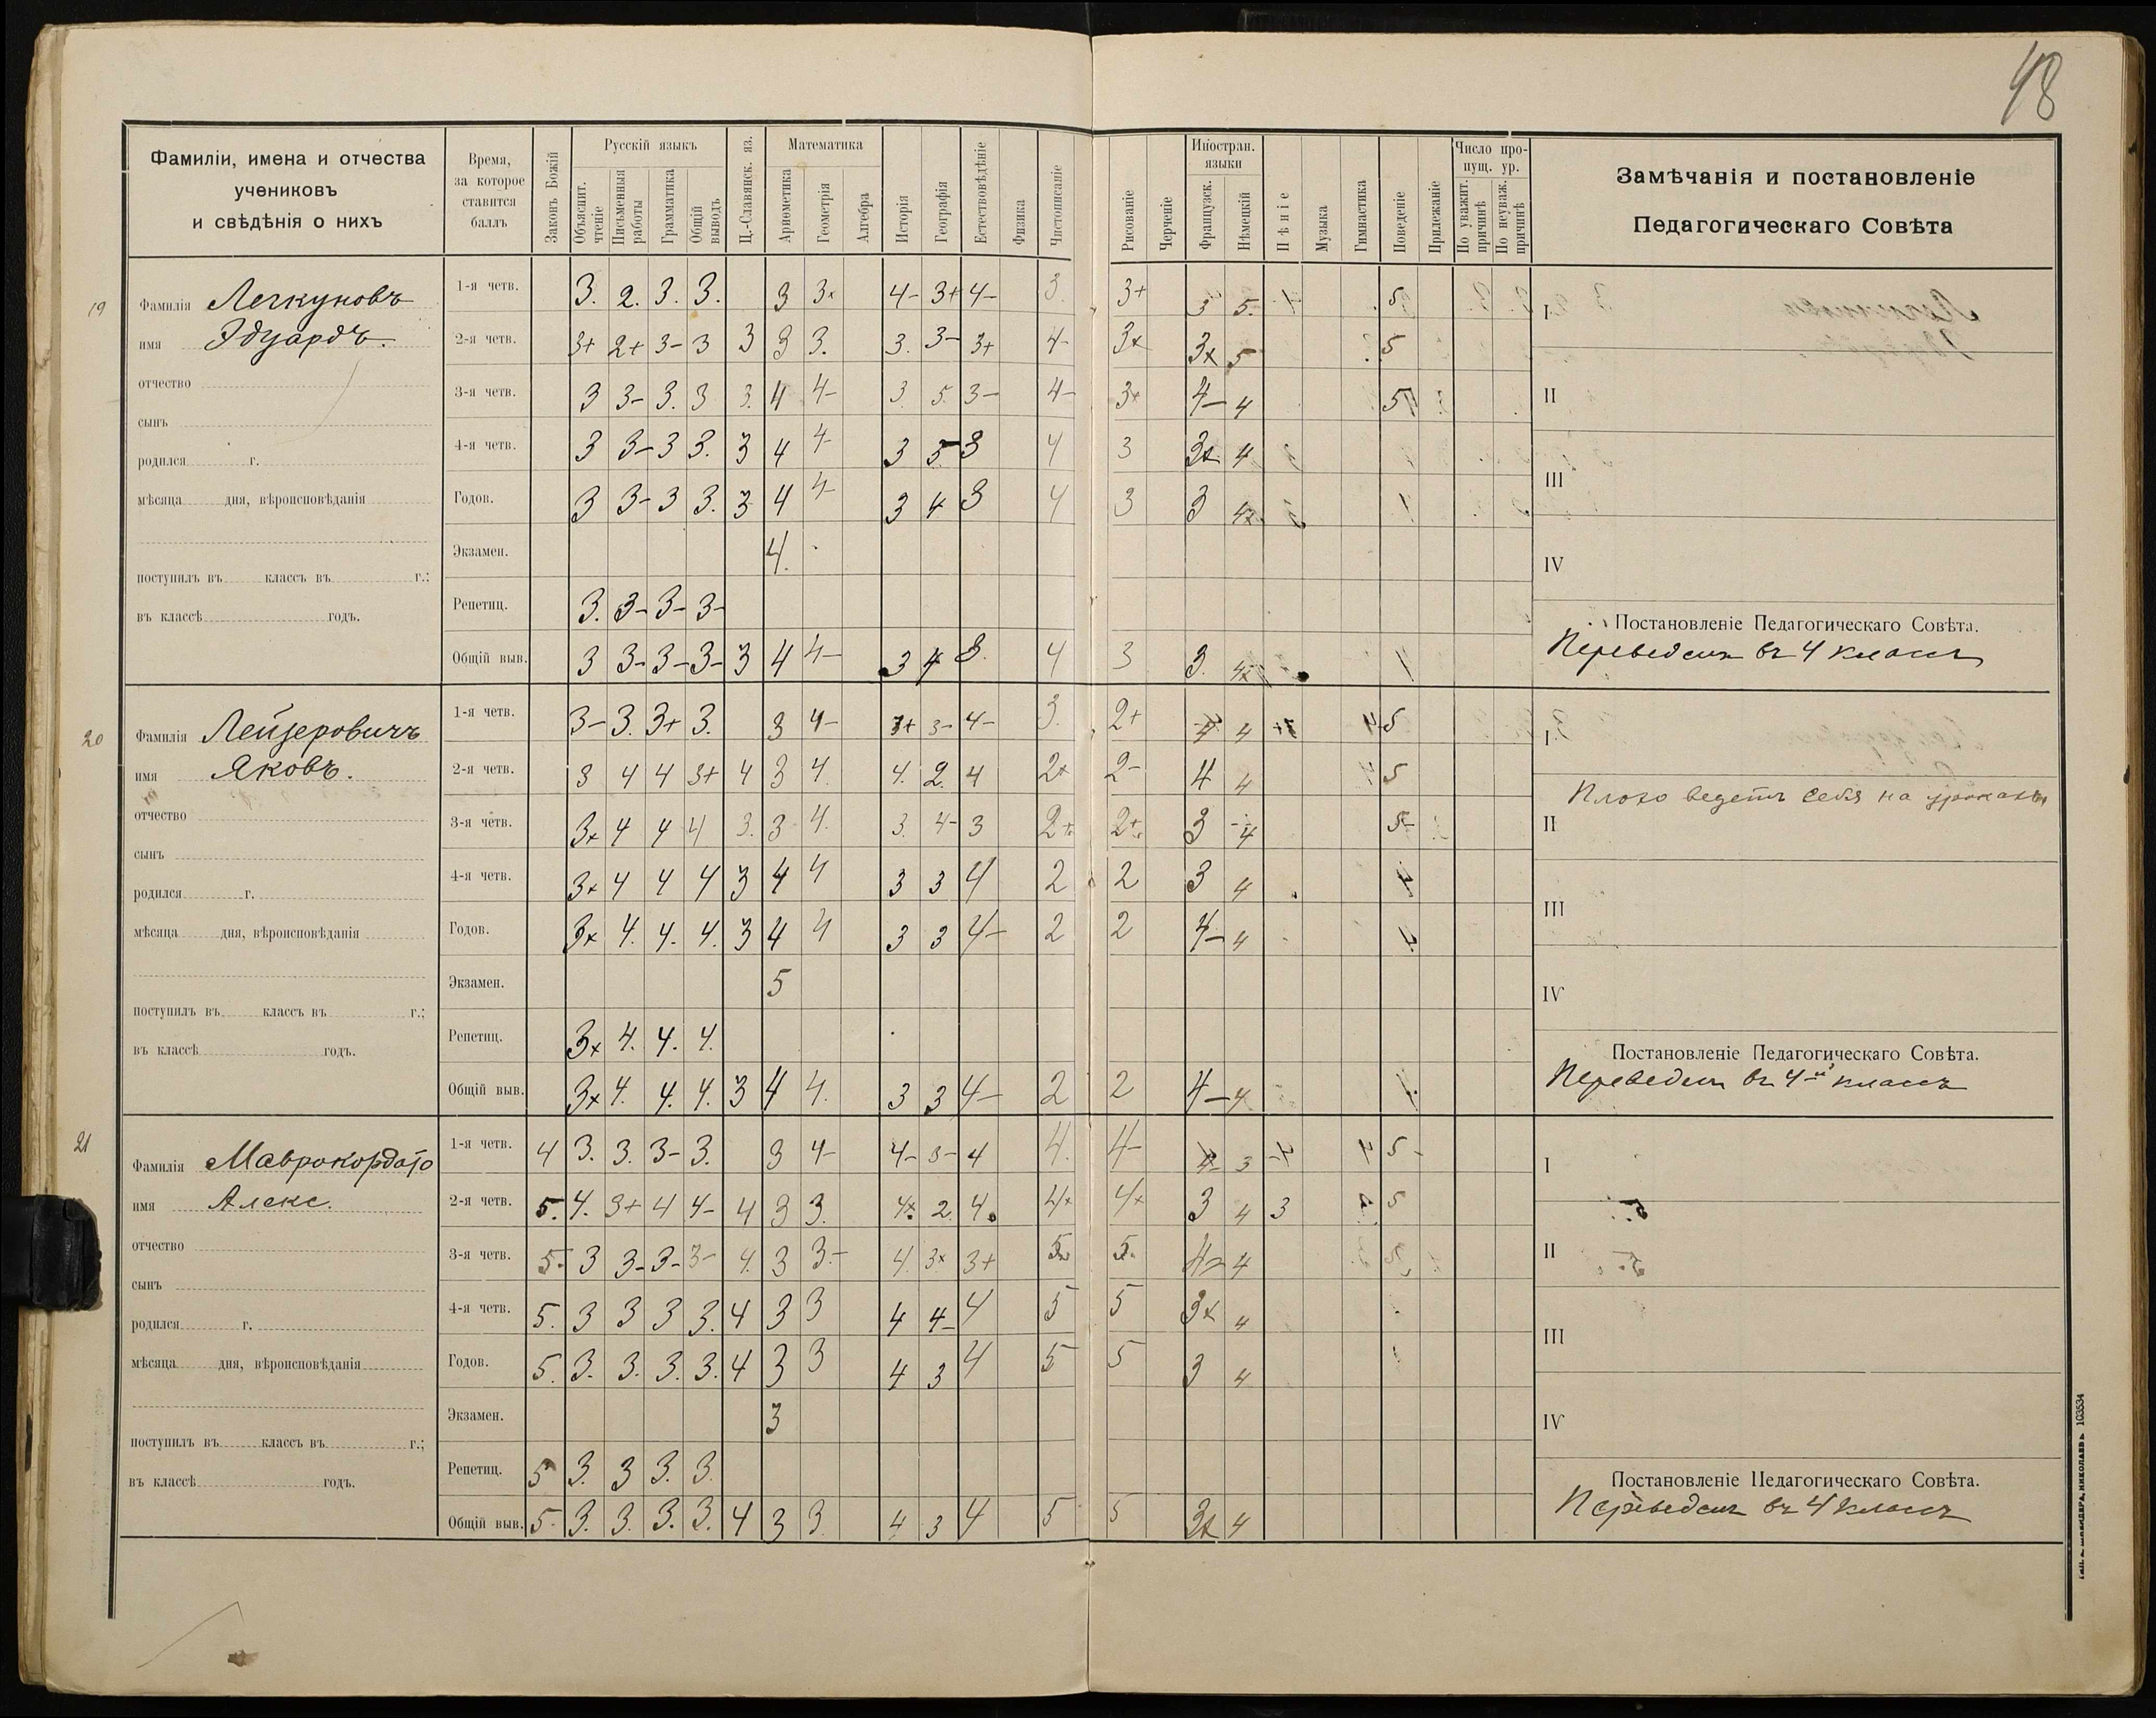 48
Фамиліи, имена и отчества
учениковъ
и свѣдѣнія о нихъ
Время,
за которое
ставится
баллъ
Законъ Божій
Русскій языкъ
Объяснит. чтеніе
Письменныя работы
Грамматика
Общій выводъ
Ц.-Славянск. яз.
Математика
Ариѳметика
Геометрія
Алгебра
Исторія
Географія
Естествовѣдѣніе
Физика
Чистописаніе
Рисованіе
Черченіе
Иностран.
языки
Французск.
Нѣмецкій
Пѣніе
Музыка
Гимнастика
Поведеніе
Прилежаніе
Число про-
пущ. ур.
По уважит. причинѣ
По неуваж. причинѣ
Замѣчанія и постановленіе
Педагогическаго Совѣта
19
Фамилія Легкуновъ
имя Эдуардъ.
отчество
сынъ
родился г.
мѣсяца дня, вѣроисповѣданія
поступилъ въ классъ въ г.;
въ классѣ годъ.
1-я четв. 3. 2. 3. 3. 3 3+ 4- 3+ 4- 3. 3+ 3 5. 5
2-я четв. 3+ 2+ 3- 3 3 3 3. 3. 3- 3+ 4- 3+ 3+ 5 5
3-я четв. 3 3- 3. 3 3. 4 4- 3. 5. 3- 4- 3+ 4- 4 5
4-я четв. 3 3- 3 3. 3 4 4- 3 5 3 4 3 3+ 4
Годов. 3 3- 3 3. 3 4 4- 3 4 3 4 3 3 4+
Экзамен. 4.
Репетиц. 3. 3- 3- 3-
Общій выв. 3 3- 3- 3- 3 4 4- 3 4 3. 4 3 3. 4+
I
II
III
IV
Постановленіе Педагогическаго Совѣта.
Переведенъ въ 4 классъ
20
Фамилія Лейзеровичъ
имя Яковъ.
отчество
сынъ
родился г.
мѣсяца дня, вѣроисповѣданія
поступилъ въ классъ въ г.;
въ классѣ годъ.
1-я четв. 3- 3. 3+ 3. 3 4- 3+ 3- 4- 3. 2+ 4 5
2-я четв. 3 4 4 3+ 4 3 4. 4. 2. 4 2+ 2- 4 4 5
3-я четв. 3+ 4 4 4 3. 3 4. 3. 4- 3 2+ 2+ 3 4 5-
4-я четв. 3+ 4 4 4 3 4 4 3 3 4 2 2 3 4
Годов. 3+ 4. 4. 4. 3 4 4 3 3 4- 2 2 4- 4
Экзамен. 5
Репетиц. 3+ 4. 4. 4.
Общій выв. 3+ 4. 4. 4. 3 4 4. 3 3 4- 2 2 4- 4
I
Плохо ведетъ себя на урокахъ
II
III
IV
Постановленіе Педагогическаго Совѣта.
Переведенъ въ 4-й классъ
21
Фамилія Маврокордато
имя Алекс.
отчество
сынъ
родился г.
мѣсяца дня, вѣроисповѣданія
поступилъ въ классъ въ г.;
въ классѣ годъ.
1-я четв. 4 3. 3. 3- 3. 3 4- 4- 3- 4 4. 4- 3 5-
2-я четв. 5. 4. 3+ 4 4- 4 3 3. 4+ 2. 4. 4+ 4+ 3 4 3 5
3-я четв. 5. 3 3- 3- 3- 4. 3 3- 4. 3+ 3+ 5 5 4- 4
4-я четв. 5. 3 3 3 3. 4 3 3 4 4- 4 5 5 3+ 4
Годов. 5. 3. 3. 3. 3. 4 3 3 4 3 4 5 5 3 4
Экзамен. 3
Репетиц. 5 3. 3 3. 3.
Общій выв. 5. 3. 3. 3. 3. 4 3 3. 4 3 4 5 5 3+ 4
I
II
III
IV
Постановленіе Педагогическаго Совѣта.
Переведенъ въ 4 классъ
НИКОЛАЕВЪ 103534